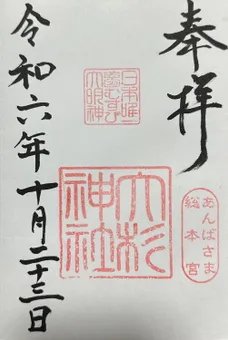 奉拝
日本唯一
大明神
大杉
神社
あんばさま
総本宮
令和六年十月二十三日